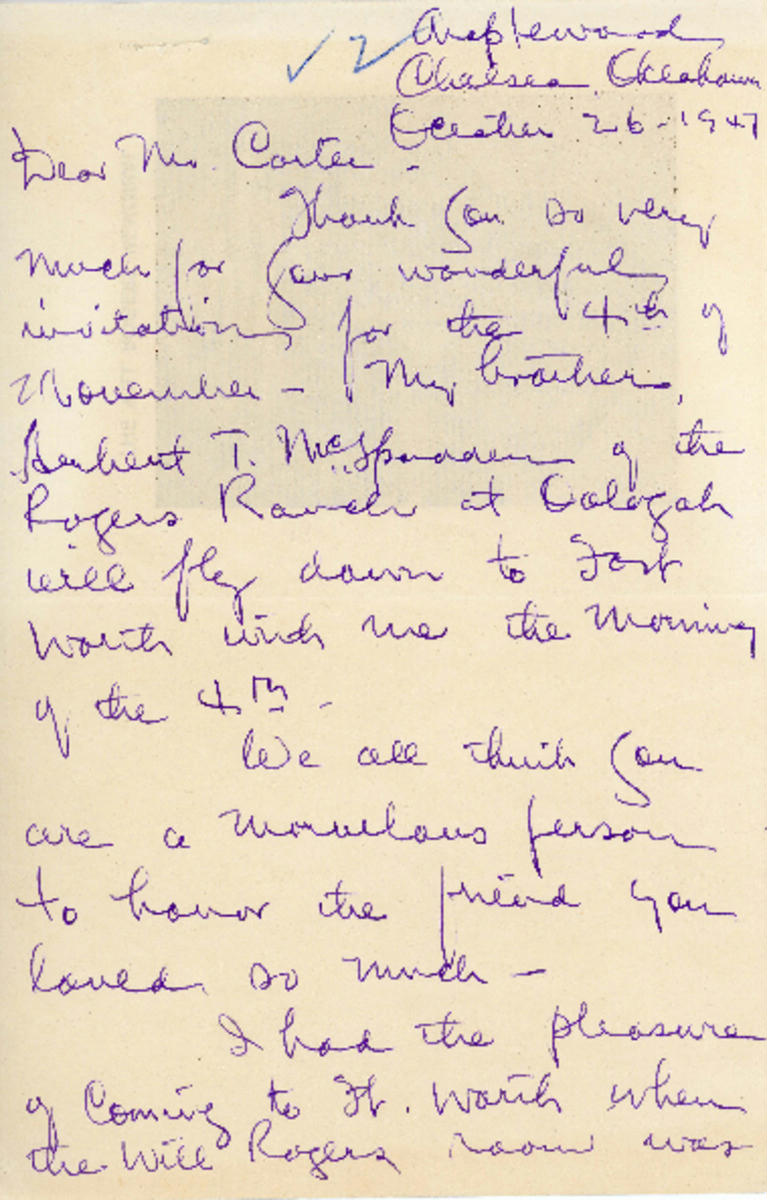 ✓ 2
Maplewood
Chelsea, Oklahoma
October 26-1947
Dear Mr. Carter -
Thank you so very
much for your wonderful
invitation for the 4th of
November - My brother,
Herbert T. McSpadden of the
Rogers Ranch at Oologah
will fly down to Fort
Worth with me the morning
of the 4th -
We all think you
are a marvelous person
to honor the friend you
loved so much -
I had the pleasure
of coming to Ft. Worth when
the Will Rogers room was